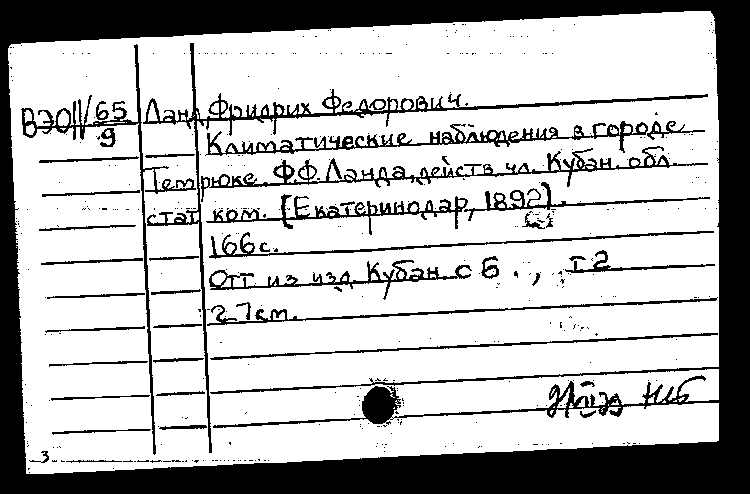 ВЭО II/65/9 Ланд, Фридрих Федорович.
Климатические наблюдения в городе
Темрюке Ф.Ф. Ланда, действ. чл. Кубан. обл.
стат. ком. [Екатеринодар, 1892].
166 с.
Отт. из изд. Кубан. сб., т 2
27 см.
НБ
3